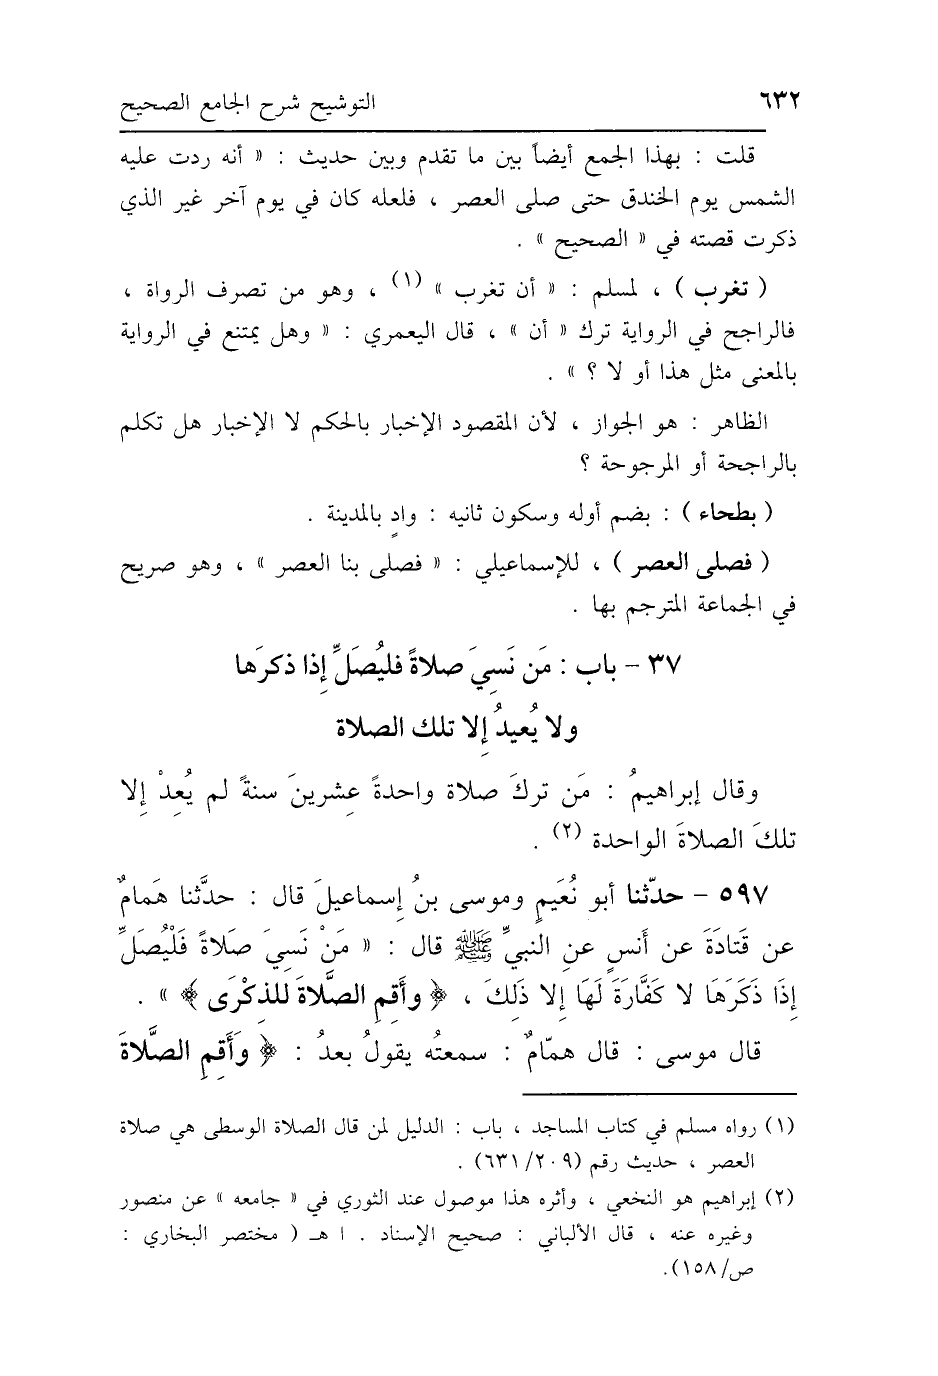 ٦٣٢ التوشيح شرح الجامع الصحيح
قلت : بهذا الجمع أيضاً بين ما تقدم وبين حديث : « أنه ردت عليه
الشمس يوم الخندق حتى صلى العصر ، فلعله كان في يوم آخر غير الذي
ذكرت قصته في « الصحيح » .
( تغرب ) ، لمسلم : « أن تغرب » (١) ، وهو من تصرف الرواة ،
فالراجح في الرواية ترك « أن » ، قال اليعمري : « وهل يمتنع في الرواية
بالمعنى مثل هذا أو لا ؟ » .
الظاهر : هو الجواز ، لأن المقصود الإخبار بالحكم لا الإخبار هل تكلم
بالراجحة أو المرجوحة ؟
( بطحاء ) : بضم أوله وسكون ثانيه : وادٍ بالمدينة .
( فصلى العصر ) ، للإسماعيلي : « فصلى بنا العصر » ، وهو صريح
في الجماعة المترجم بها .
٣٧ – باب : مَن نَسِيَ صلاةً فليُصَلِّ إِذا ذكرَها
ولا يُعيدُ إِلا تلك الصلاة
وقال إبراهيمُ : مَن تركَ صلاة واحدةً عِشرينَ سنةً لم يُعِدْ إِلا
تلكَ الصلاةَ الواحدة (٢) .
٥٩٧ – حدّثنا أبو نُعَيمٍ وموسى بنُ إِسماعيلَ قال : حدَّثنا هَمامٌ
عن قَتادَةَ عن أَنسٍ عنِ النبيِّ ﷺ قال : « مَنْ نَسِيَ صَلاةً فَلْيُصَلِّ
إِذَا ذَكَرَهَا لا كَفَّارَةَ لَهَا إِلا ذَلِكَ ، ﴿ وأَقِمِ الصَّلاةَ للذِكْرَى ﴾ » .
قال موسى : قال همّامٌ : سمعتُه يقولُ بعدُ : ﴿ وَأَقِمِ الصَّلاةَ
(١) رواه مسلم في كتاب المساجد ، باب : الدليل لمن قال الصلاة الوسطى هي صلاة
العصر ، حديث رقم (٢٠٩/ ٦٣١) .
(٢) إبراهيم هو النخعي ، وأثره هذا موصول عند الثوري في « جامعه » عن منصور
وغيره عنه ، قال الألباني : صحيح الإسناد . ا هـ ( مختصر البخاري :
ص/١٥٨).